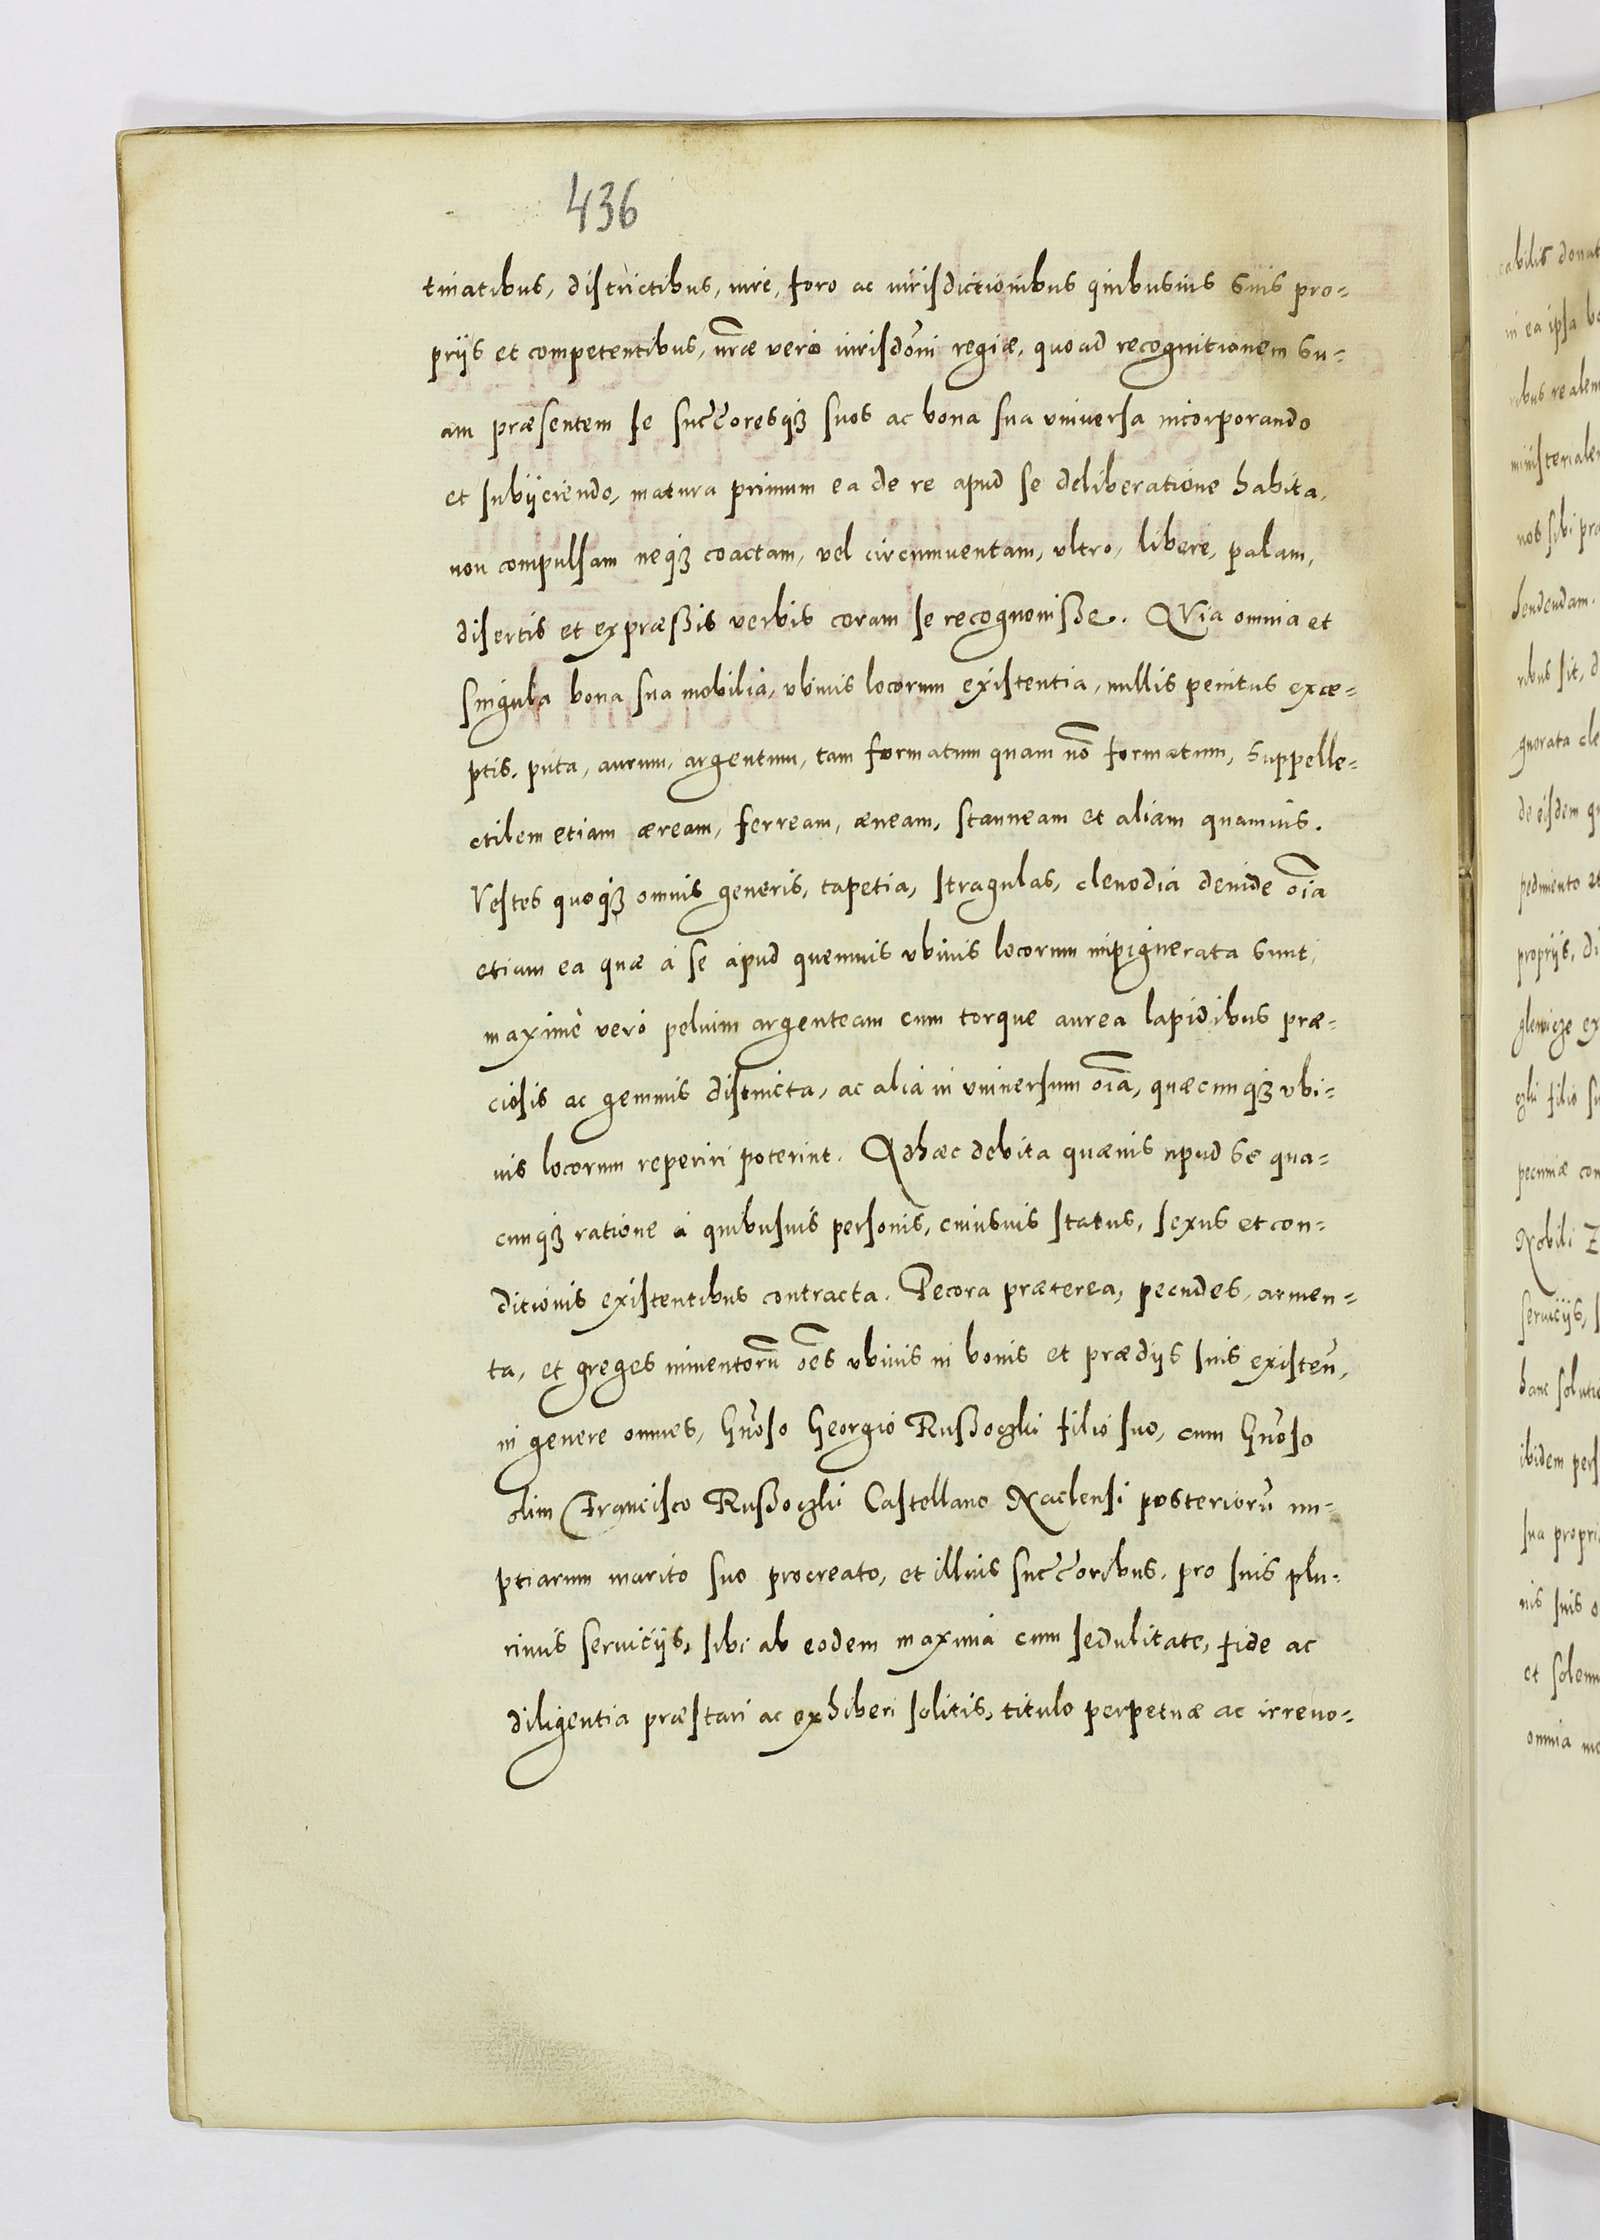 436
tinatibus, districtibus, iure, foro ac iurisdictionibus quibusuis suis pro-
prijs et competentibus, nr̃æ vero iurisdõni regiæ, quoad recognitionem su-
am præsentem se succ̃oresq₃ suos ac bona sua vniuersa incorporando
et subijciendo, matura primum ea de re apud se deliberatione habita,
non compulsam neq₃ coactam, vel circumuentam, vltro, libere, palam,
disertis et expræßis verbis coram se recognouiße. QVia omnia et
singula bona sua mobilia, vbiuis locorum existentia, nullis penitus exce-
ptis, puta, aurum, argentum, tam formatum quam nõ formatum, suppelle-
ctilem etiam æream, ferream, æneam, stanneam et aliam quamuis.
Vestes quoq₃ omnis generis, tapetia, stragulas, clenodia deinde oĩa
etiam ea quæ à se apud quemuis vbiuis locorum impignerata sunt,
maximè verò peluim argenteam cum torque aurea lapidibus præ-
ciosis ac gemmis distincta, ac alia in vniuersum oĩa, quæcunq₃ vbi-
uis locorum reperiri poterint. Adhæc debita quæuis apud se qua-
cunq₃ ratione à quibusuis personis, cuiusuis status, sexus et con-
ditionis existentibus contracta. Pecora præterea, pecudes, armen-
ta, et greges iumentorũ oẽs vbiuis in bonis et prædijs suis existeñ,
in genere omnes, Gñoso Georgio Rußoczki filio suo, cum Gñoso
olim Francisco Rußoczki Castellano Naclensi posteriorũ nu-
ptiarum marito suo procreato, et illius succ̃oribus, pro suis plu-
rimis seruicijs, sibi ab eodem maxima cum sedulitate, fide ac
diligentia præstari ac exhiberi solitis, titulo perpetuæ ac irreuo-
cabilis donat
in ea ipsa bo
ribus realem
ministerialem
nos sibi pra
hendendam.
ribus sit, d
gnorata cle
de eisdem qu
pedimento et
proprijs, di
ex
filio su
pecuniæ con
Nobili Z
seruicijs, s
hanc soluti
ibidem pers
sua propri
nis suis o
et solenn
omnia mo